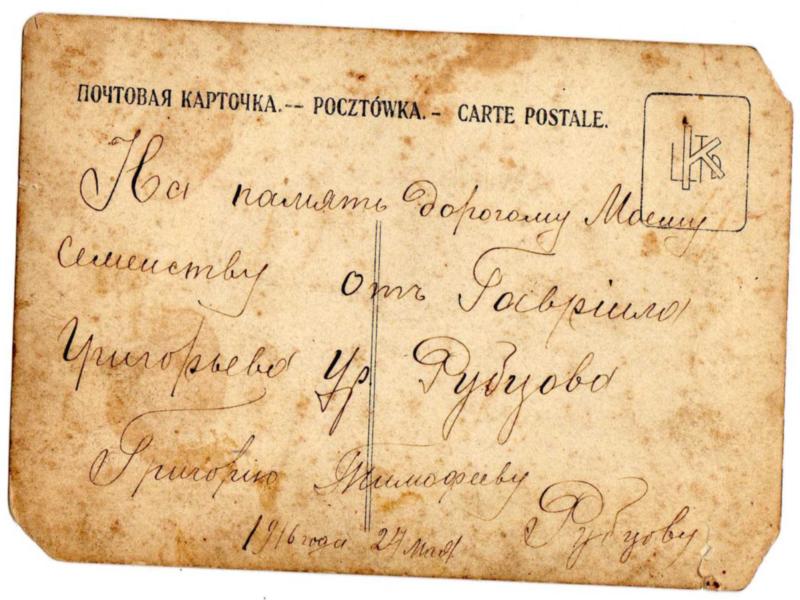 ПОЧТОВАЯ КАРТОЧКА.-- POCZTÓWKA.- CARTE POSTALE.
На память дорогому Моему
семеиству отъ Гавріила
Григорьева Ур Рубцова
Григорію Тимофееву
Рубцову
1916 года 24 мая